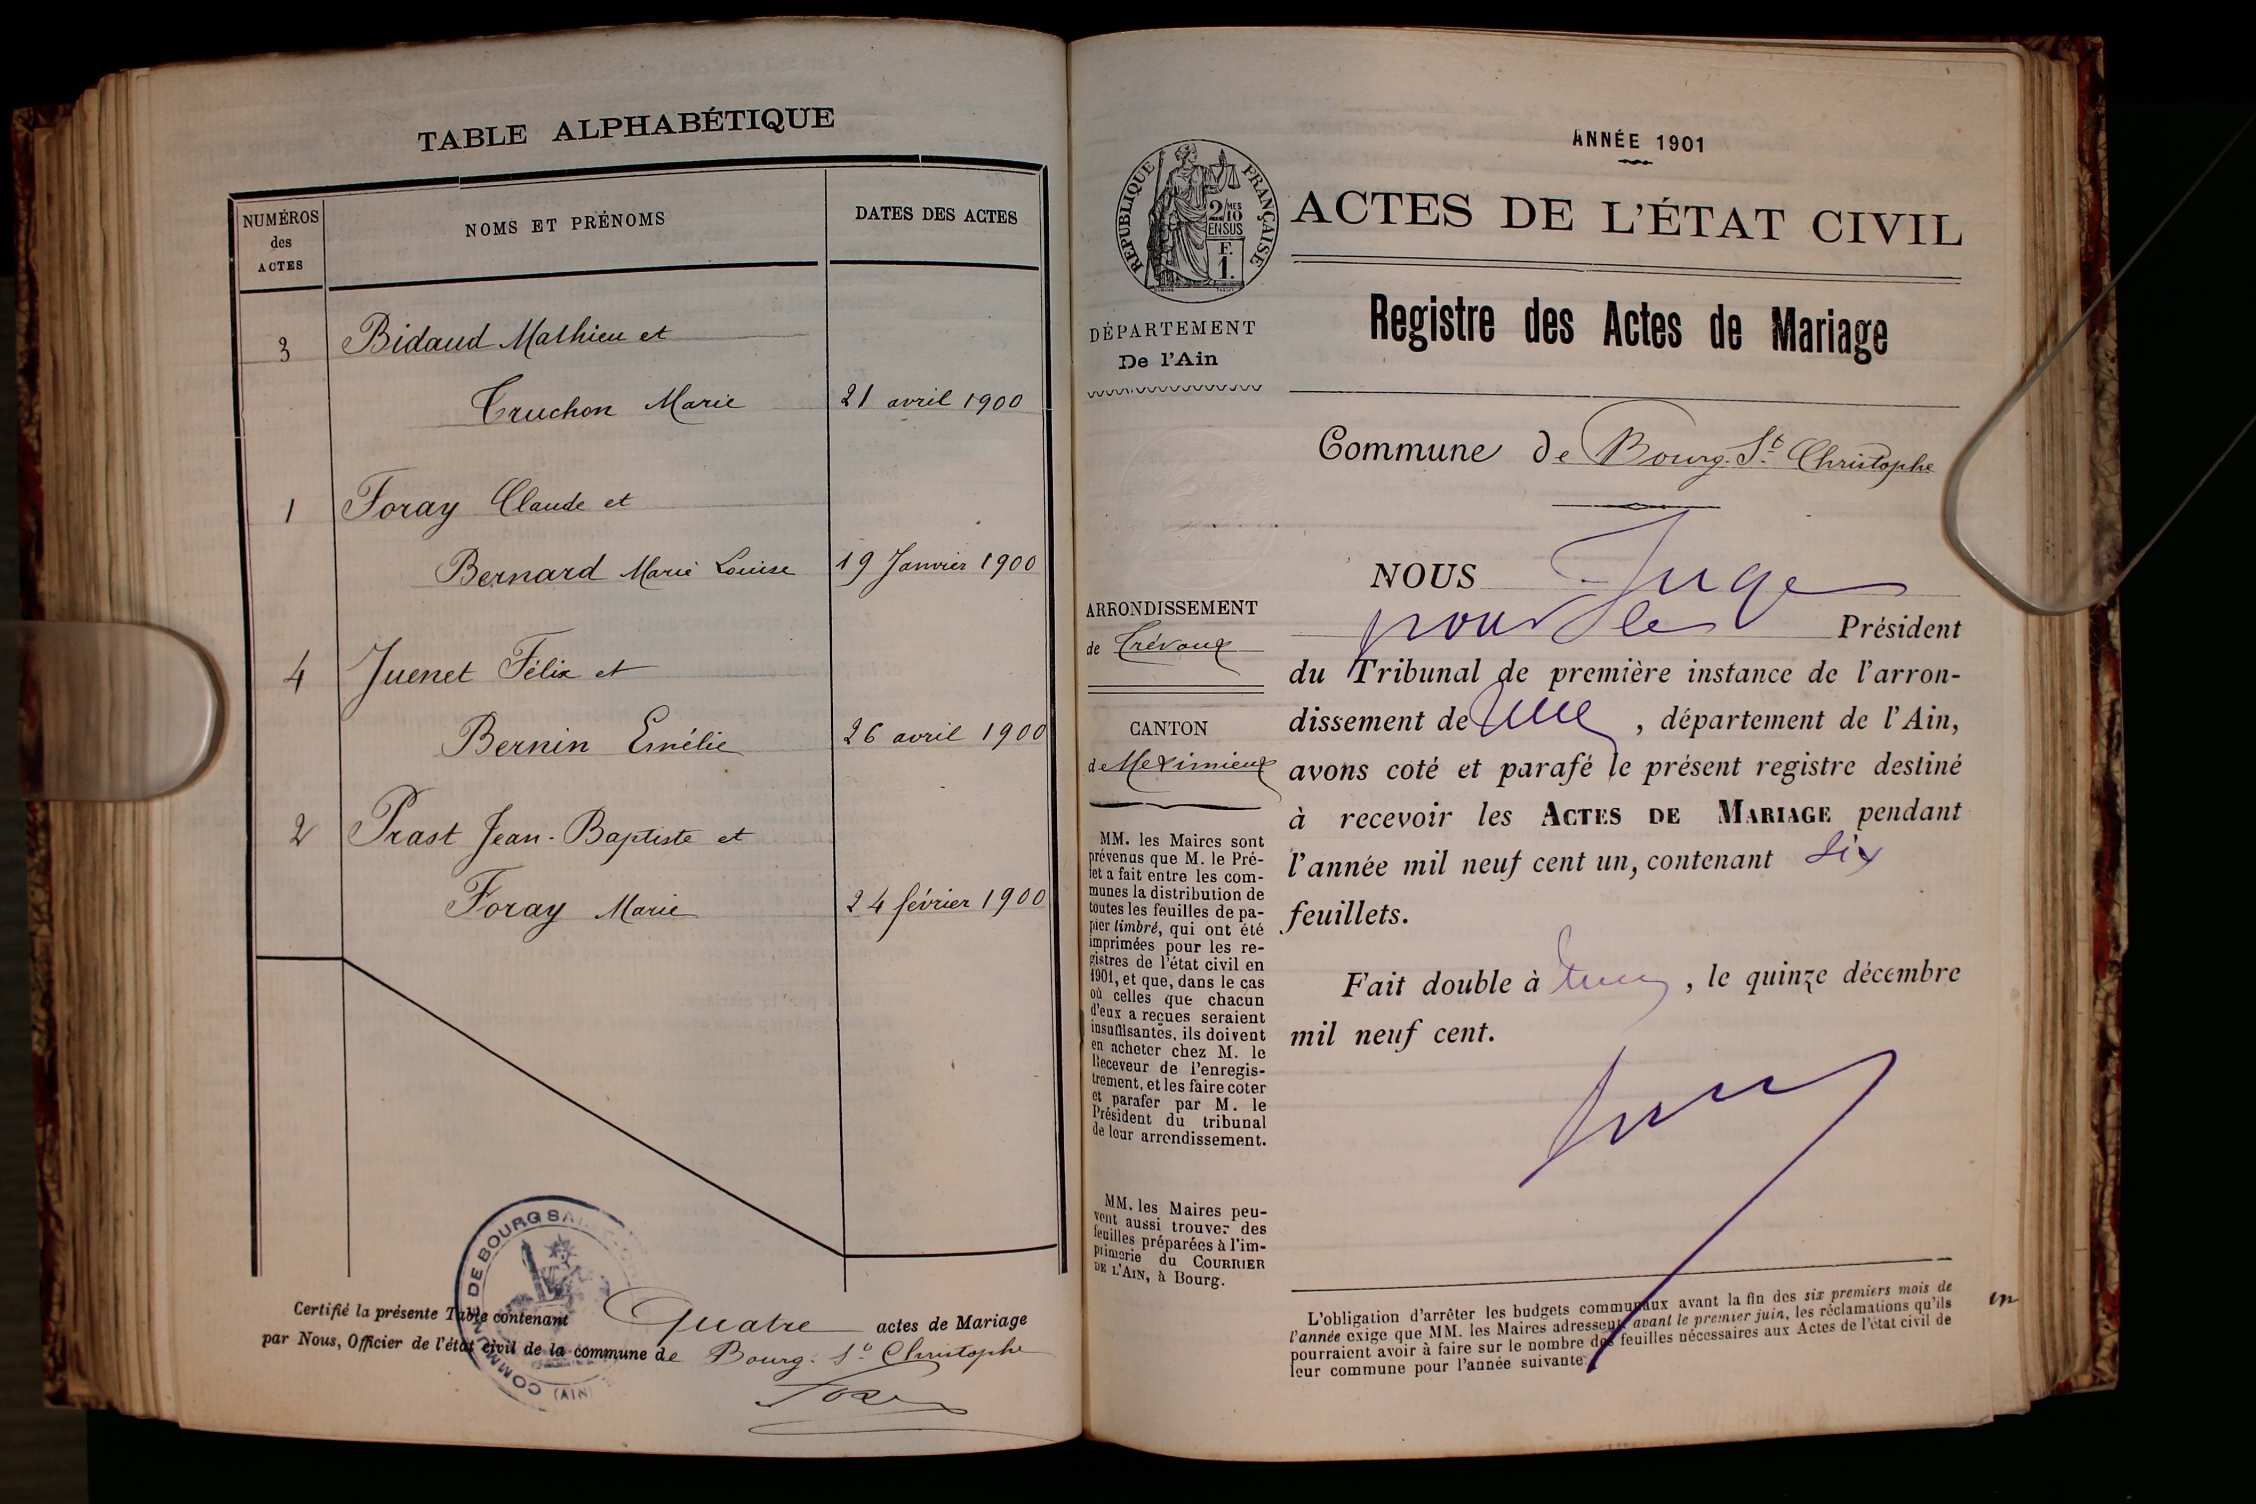 TABLE ALPHABÉTIQUE
NUMÉROS
des
ACTES
NOMS ET PRÉNOMS
DATES DES ACTES
3 Bidaud Mathieu et
Truchon Marie 21 avril 1900
1 Foray Claude et
Bernard Marie Louise 19 Janvier 1900
4 Juenet Félix et
Bernin Emélie 26 avril 1900
2 Prast Jean-Baptiste et
Foray Marie 24 février 1900
COMMUNE DE BOURG SA
(AIN)
Certifié la présente Table contenant Quatre actes de Mariage
par Nous, Officier de l'état civil de la commune de Bourg. St Christophe
RÉPUBLIQUE FRANÇAISE
2/10 MES
EN SUS
F.
1.
DÉPARTEMENT
De l'Ain
ARRONDISSEMENT
de Trévoux
CANTON
de Meximieux
MM. les Maires sont
prévenus que M. le Pré-
fet a fait entre les com-
munes la distribution de
toutes les feuilles de pa-
pier timbré, qui ont été
imprimées pour les re-
gistres de l'état civil en
1901, et que, dans le cas
où celles que chacun
d'eux a reçues seraient
insuffisantes, ils doivent
en acheter chez M. le
Receveur de l'enregis-
trement, et les faire coter
et parafer par M. le
Président du tribunal
de leur arrondissement.
MM. les Maires peu-
vent aussi trouver des
feuilles préparées à l'im-
primerie du COURRIER
DE L'AIN, à Bourg.
ANNÉE 1901
ACTES DE L'ÉTAT CIVIL
Registre des Actes de Mariage
Commune de Bourg. St Christophe
NOUS Juge
pour le Président
du Tribunal de première instance de l'arron-
dissement de , département de l'Ain,
avons coté et parafé le présent registre destiné
à recevoir les ACTES DE MARIAGE pendant
l'année mil neuf cent un, contenant six
feuillets.
Fait double à , le quinze décembre
mil neuf cent.
L'obligation d'arrêter les budgets communaux avant la fin des six premiers mois de
l'année exige que MM. les Maires adressent, avant le premier juin, les réclamations qu'ils
pourraient avoir à faire sur le nombre des feuilles nécessaires aux Actes de l'état civil de
leur commune pour l'année suivante.